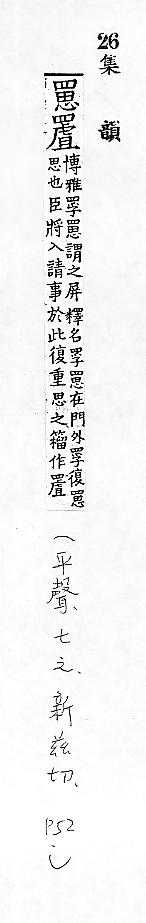 26
集韻
罳𦊙
博雅罦罳謂之屏釋名罦罳在門外罦復罳
思也臣將入請事於此復重思之籀作𦊙
(平聲、七之、新茲切、P52